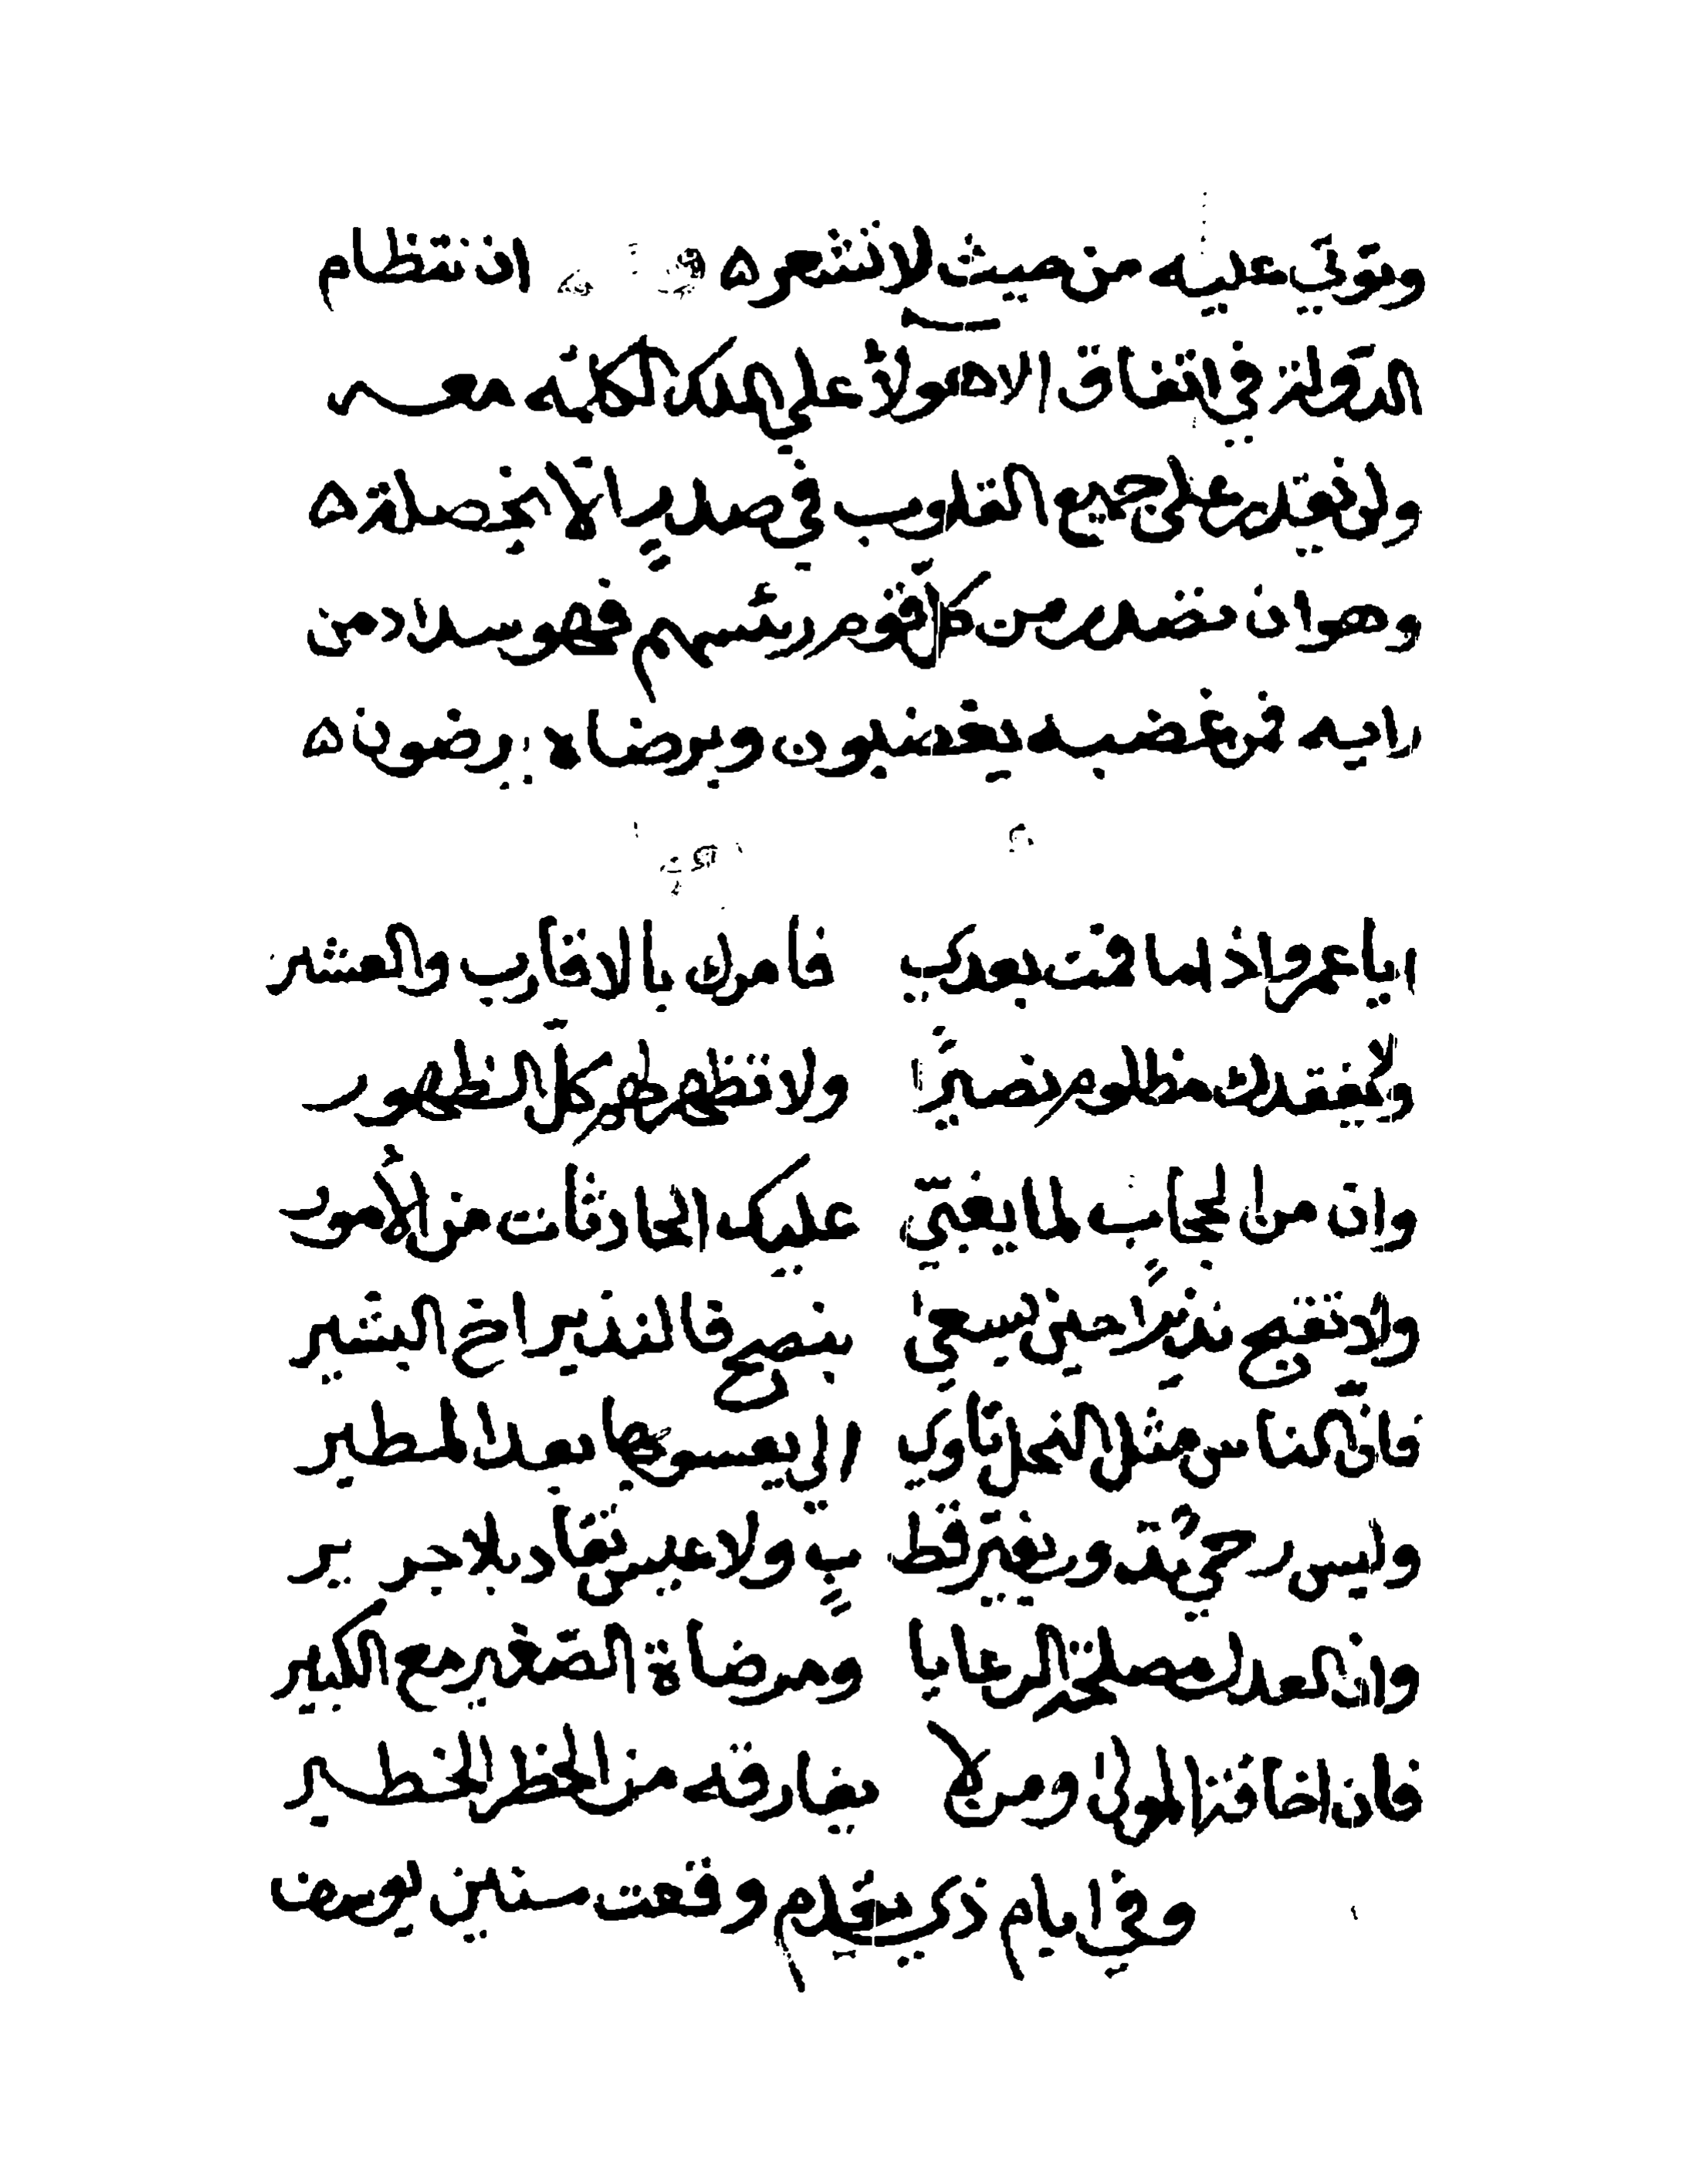 وتؤتي عليه من حيث لا تشعر ه ان نتظام
الدولة في اتفاق الاهولاْ علي الملك الكلمه معه
ولن تقدر على جميع القلوب في صدير الّا بخصلة ه
وهو ان تضدر من كلّ قوم رئسهم فهو سداد من
رايه فمن غضبه يغضبون وبرضاه يرضون ه
ايا عمرو اذا ما قمت بعدي فامرك بالاقارب والعشير
ولا يفقدك مظلوم نصيرًا ولا تظهر لهم كلّ الظهور
وان من الحجاب لما يغبّي عليك الحادثات من الأمور
ولا تقبح نذيرًا حين يسعى بنصح فالنذير اخ البشير
فانّ الناس مثل النحل تاوي الى يعسوبها بعد المطير
وليس رحيً تدور بغير قطب ولا عير تقاد بلا جرير
وان العدل مصلحة الرعايا ومرضاة الصّغير مع الكبير
فان اخافة المولى ومن لا يفارقه من الخطر الخطير
وفي ايام ذي يقدم وقعت سنين يوسف